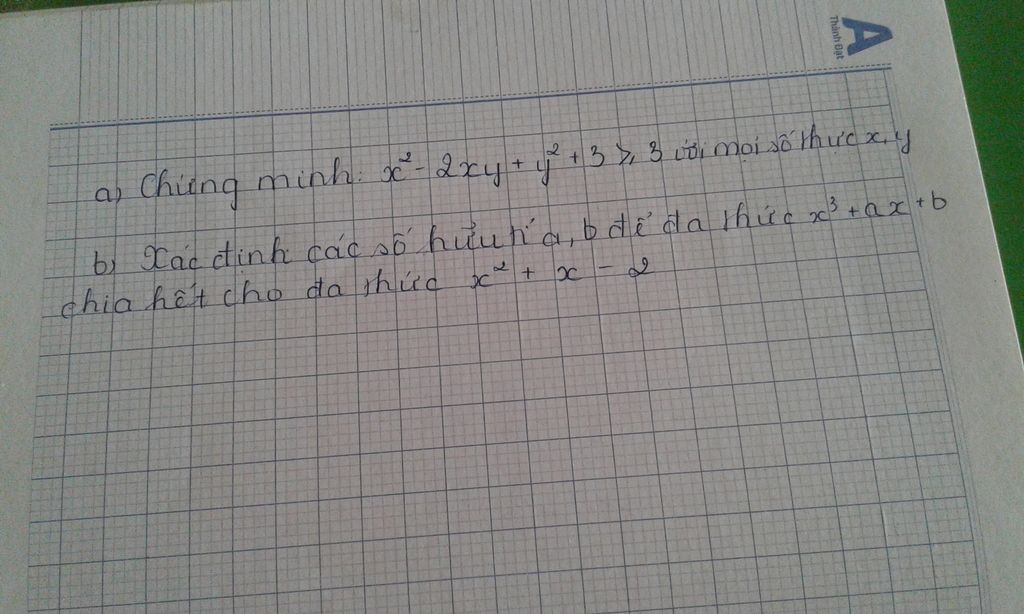 A
Thành Đạt
a) Chứng minh: x² - 2xy + y² + 3 ≥ 3 với mọi số thực x, y
b) Xác định các số hữu tỉ a, b để đa thức x³ + ax + b
chia hết cho đa thức x² + x - 2